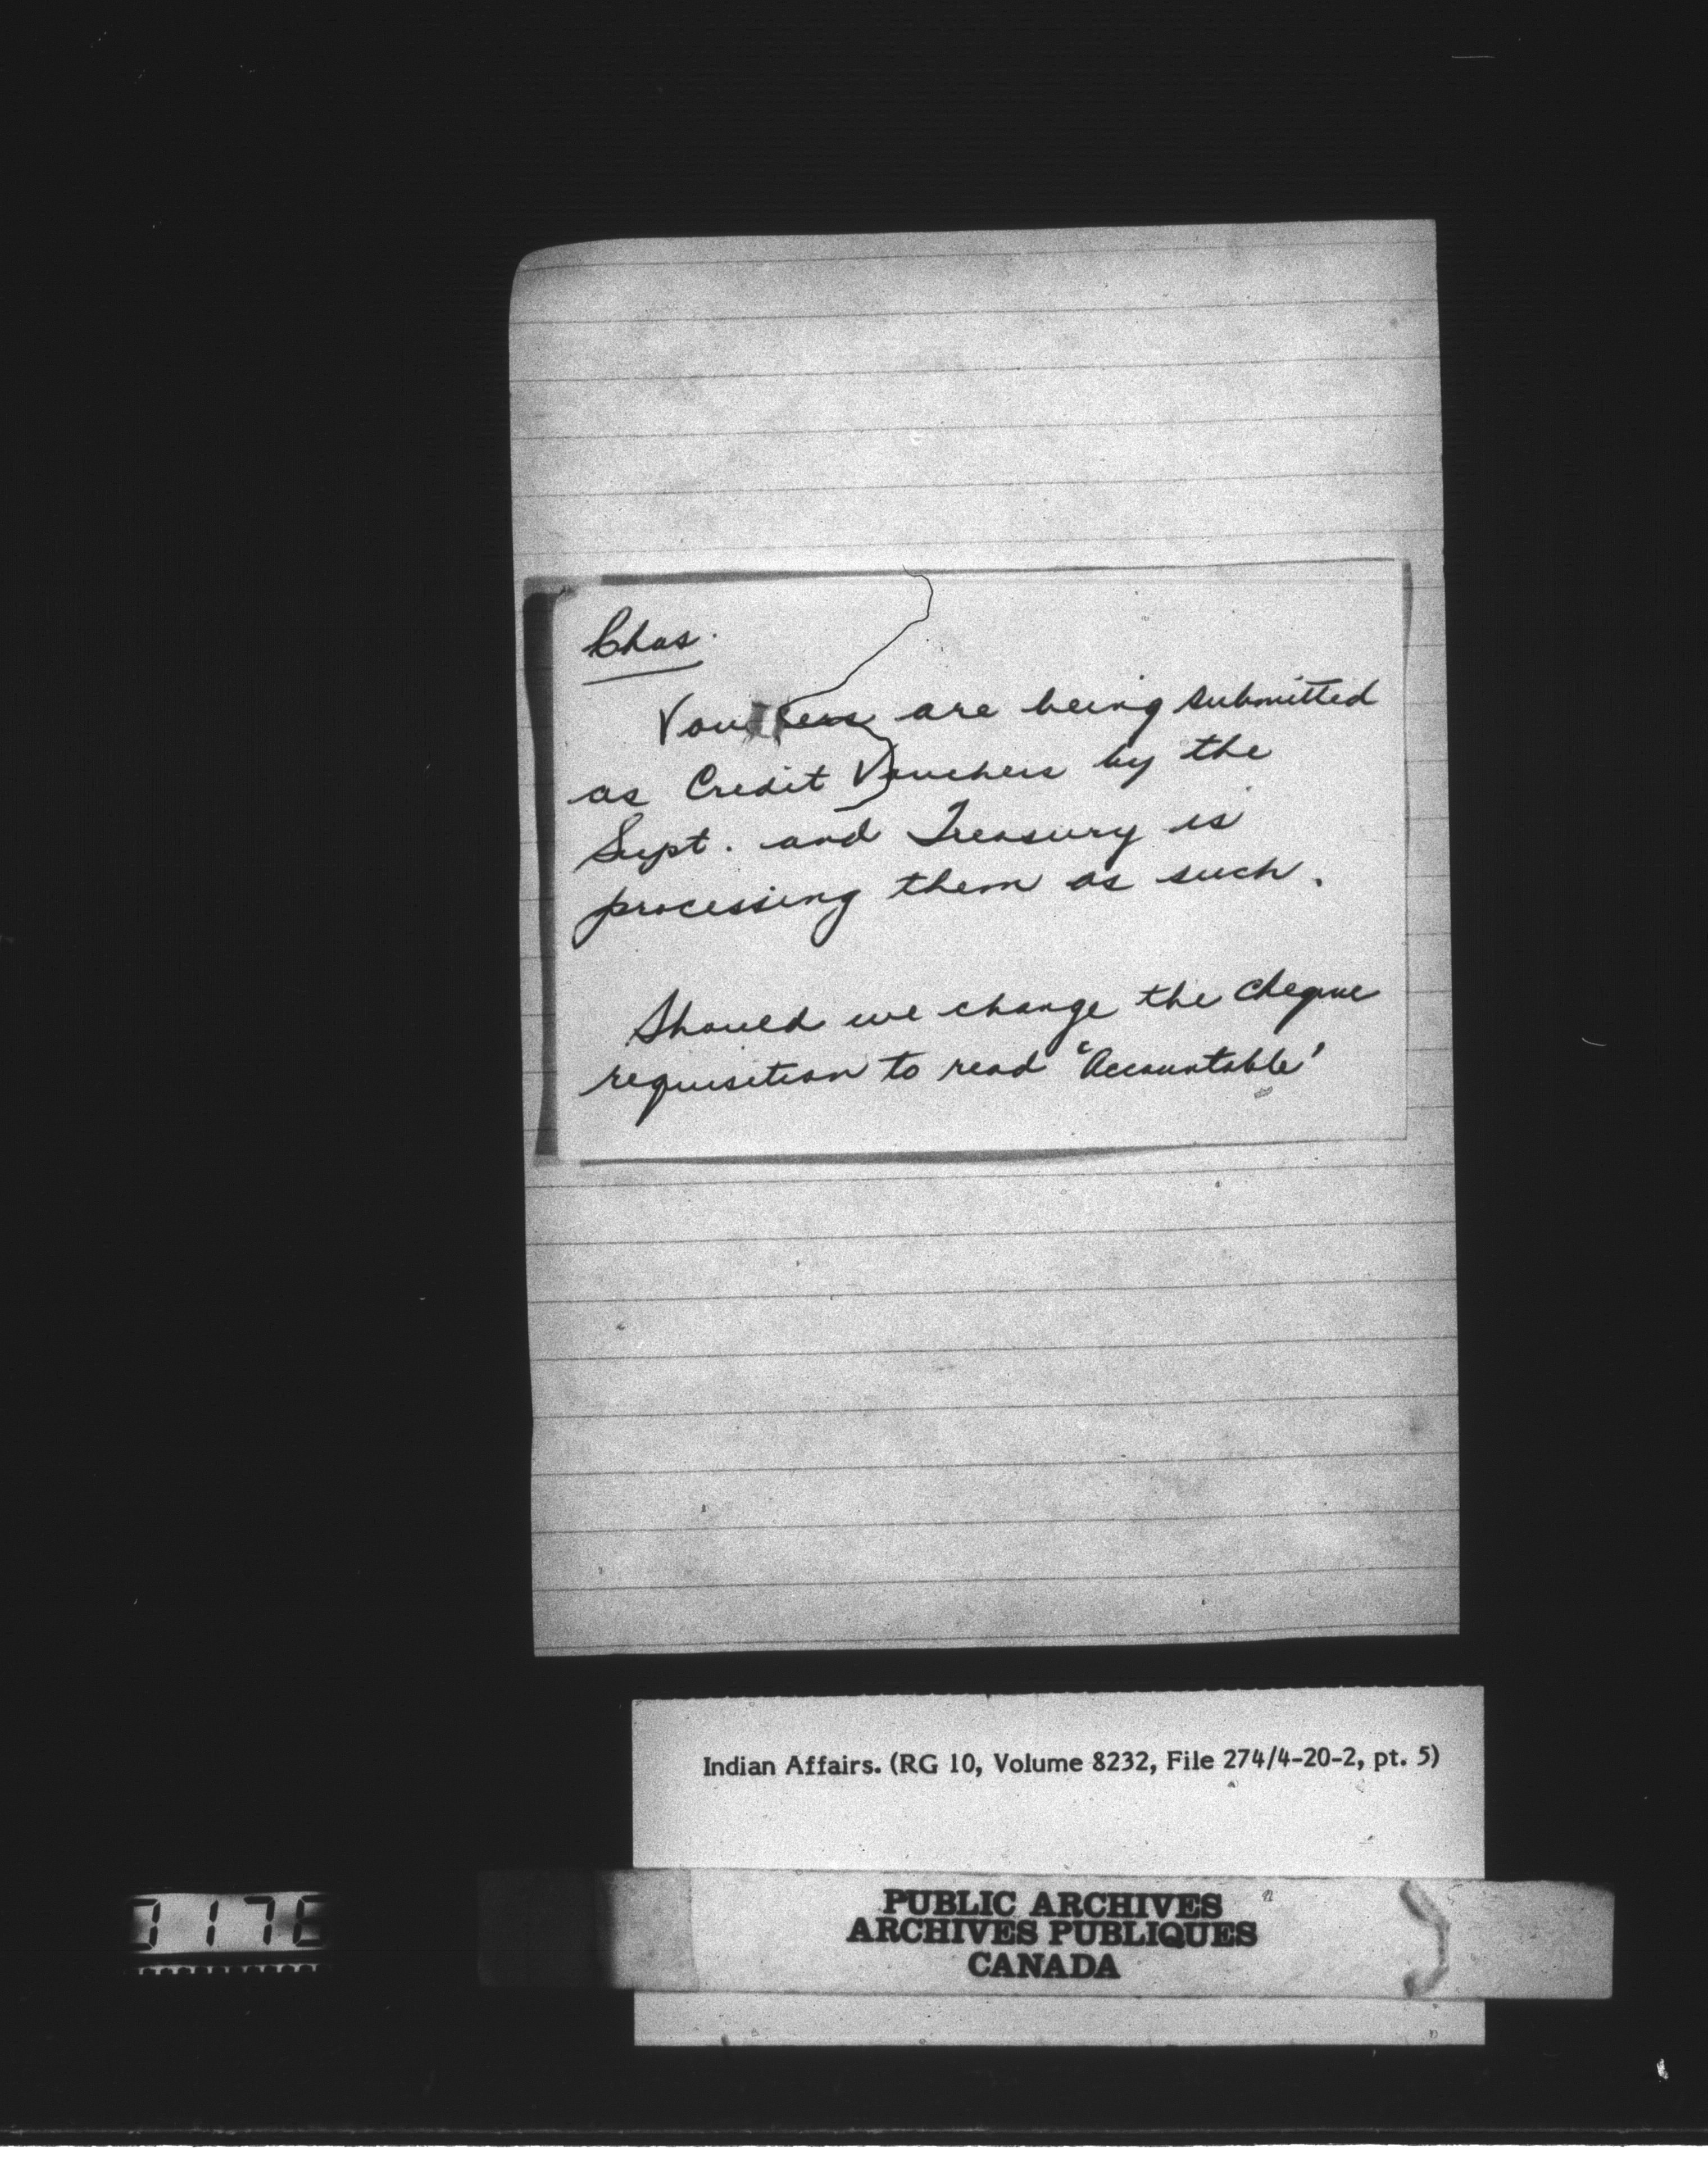 Chas.
Vouchers are being submitted
as Credit Vouchers by the
Supt. and Treasury is
processing them as such.
Should we change the cheque
requisition to read 'Accountable'
Indian Affairs. (RG 10, Volume 8232, File 274/4-20-2, pt. 5)
PUBLIC ARCHIVES
ARCHIVES PUBLIQUES
CANADA